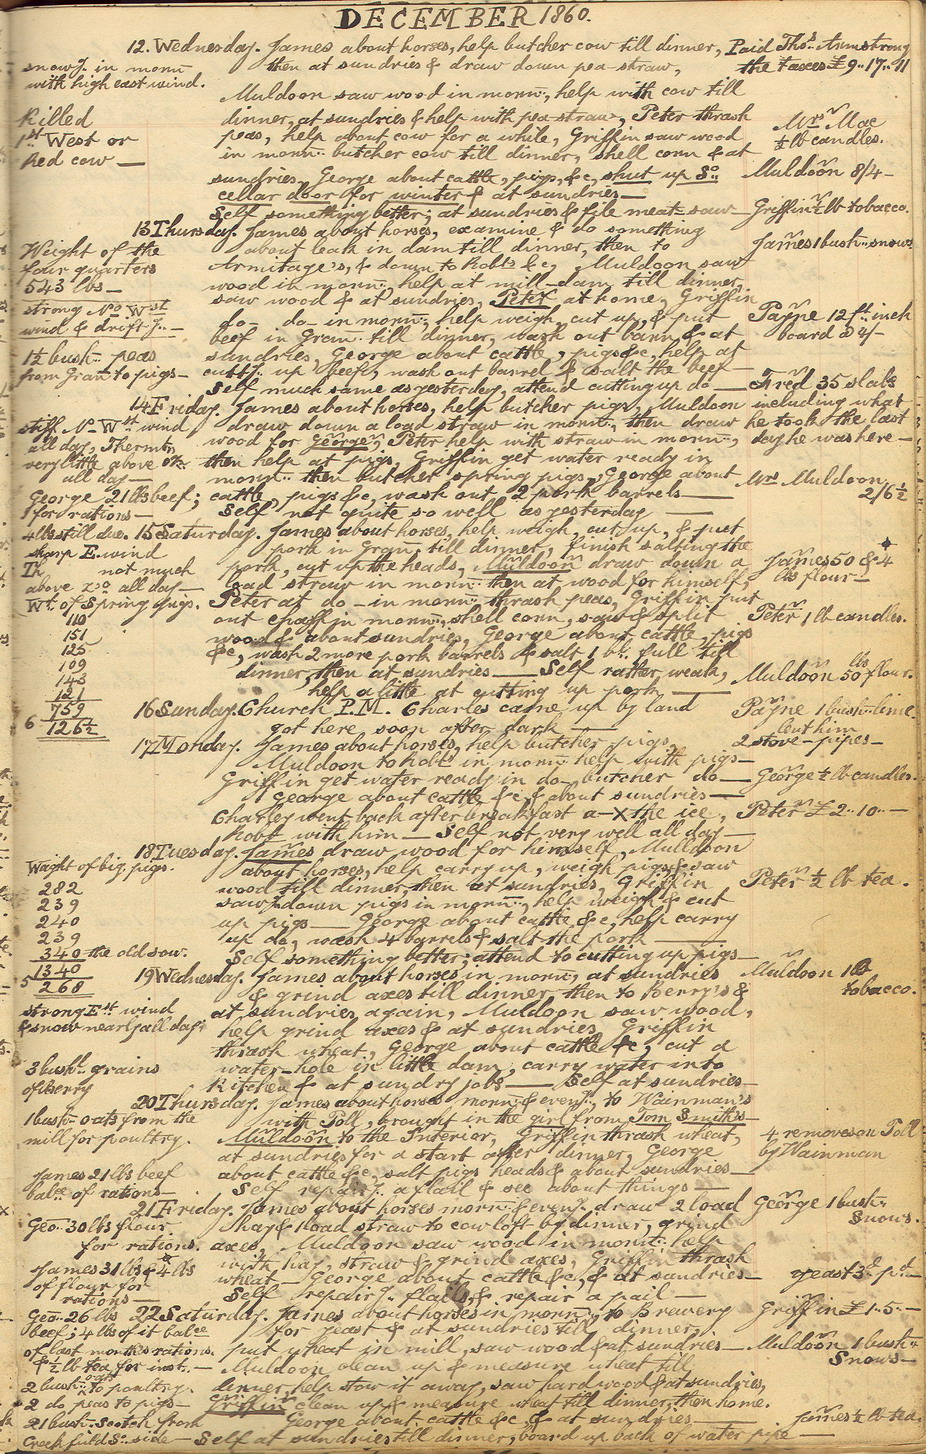 DECEMBER 1860.
12. Wednesday. James about horses, help butcher cow till dinner,
then at sundries & draw down pea-straw,
Muldoon saw wood in morng, help with cow till
dinner, at sundries & help with pea-straw, Peter thrash
peas, help about cow for a while, Griffin saw wood
in morng butcher cow till dinner, shell corn & at
sundries, George about cattle, pigs, &c, shut up So
cellar door for winter & at sundries—
Self something better; at sundries & file meat-saw—
Paid Thos Armstrong
the taxes £9..17..11
Mrs Mac
½ lb candles.
Muldoon 8/4—
Griffin ½ lb tobacco.
snowg in morng
with high east wind.
Killed
1st West or
Red cow —
13 Thursday. James about horses, examine & do something
about leak in dam till dinner, then to
Armitage's, & down to Robts &c, Muldoon saw
wood in morng, help at mill-dam till dinner,
saw wood & at sundries, Peter at home, Griffin
do— do— in morng, help weigh, cut up, & put
beef in Gran: till dinner, wash out barrl & at
sundries, George about cattle, pigs &c, help at
cuttg up beef, wash out barrel & salt the beef—
Self much same as yesterday, attend cutting up do—
James 1 bush snows
Payne 12 ft inch
board 2/4
Weight of the
four quarters
543 lbs—
strong No West
wind & driftg—
1½ bush peas
from Gran to pigs—
14 Friday. James about horses, help butcher pigs, Muldoon
draw down a load straw in morng, then draw
wood for George, Peter help with straw in morng,
then help at pigs, Griffin get water ready in
morng then butcher spring pigs, George about
cattle, pigs &c, wash out 2 pork barrels—
Self not quite so well as yesterday —
Fred 35 slabs
including what
he took the last
day he was here—
Mrs Muldoon
2/6½
stiff No Wst wind
all day, Thermtr
very little above
all day—
George 21 lbs beef;
1 for rations—
4 lbs still due.
15 Saturday. James about horses, help weigh, cut up, & put
pork in Gran: till dinner, finish salting the
pork, cut up the heads, Muldoon draw down a
load straw in morng then at wood for himself,
Peter at do— in morng thrash peas, Griffin put
out chaff in morng, shell corn, saw & split
wood & about sundries, George about cattle, pigs
&c, wash 2 more pork barrels & salt 1 bl. full till
dinner, then at sundries— Self rather weak,
help a little at cutting up pork —
James 50 & 4
lbs flour—
Peter 1 lb candles.
Muldoon 50 lbs flour.
sharp E. wind
Th not much
above zo all day—
Wt of Spring pigs.
110
151
125
109
143
121
759
6 126½
16 Sunday. Church P.M. Charles came up by land
got here soon after dark —
Payne 1 bush lime.
lent him
2 stove-pipes—
17 Monday. James about horses, help butcher pigs,
Muldoon to hold in morng help with pigs—
Griffin get water ready in do— butcher do—
George about cattle &c, & about sundries—
Charley went back after breakfast a-X the ice,
Robt with him— Self not very well all day—
George ½ lb candles.
Peter £2..10..—
18 Tuesday. James draw wood for himself, Muldoon
about horses, help carry up, weigh pigs, & saw
wood till dinner, then at sundries, Griffin
saw down pigs in morng, help weigh & cut
up pigs— George about cattle &c, help carry
up do, wash 4 barrels & salt the pork —
Self something better; attend to cutting up pigs—
Peter ½ lb tea.
Waight of big pigs.
282
239
240
239
340 the old sow.
1340
5 268
19 Wednesday. James about horses in morng, at sundries
& grind axes till dinner then to Berry's &
at sundries again, Muldoon saw wood,
help grind axes & at sundries, Griffin
thrash wheat, George about cattle &c, cut a
water-hole in little dam, carry water into
kitchen & at sundry jobs— Self at sundries—
Muldoon 1 lb
tobacco.
strong Est wind
& snow nearly all day;
3 bush grains
of Berry
20 Thursday. James about horses morng & eveng, to Wainman's
with Poll, brought in the girl from Tom Smith's—
Muldoon to the Interior, Griffin thrash wheat,
at sundries for a start after dinner, George
about cattle &c, salt pigs heads & about sundries—
Self repairg a flail & see about things—
4 removes on Poll
by Wainman
1 bush oats from the
mill for poultry.
James 21 lbs beef
balce of rations—
21 Friday. James about horses morng & eveng, draw 2 load
hay & 1 load straw to cow loft by dinner, grind
axes, Muldoon saw wood in morng help
with hay, straw & grind axes, Griffin thrash
wheat— George about cattle &c, & at sundries—
Self repairg flails, & repair a pail—
George 1 bush
snows.
yeast 3d pt—
Geo. 30 lbs flour
for rations.
James 31 lbs & 4 lbs
of flour for
rations—
22 Saturday. James about horses in morng, to Brewery
for yeast & at sundries till dinner,
put wheat in mill, saw wood & at sundries—
Muldoon clean up & measure wheat till
dinner, help stow it away, saw hard wood & at sundries,
Griffin clean up & measure wheat till dinner, then home.
George about cattle &c, & at sundries—
Self at sundries till dinner, board up back of water pipe—
Griffin £1..5..—
Muldoon 1 bush
Snows—
James ½ lb tea
Geo. 26 lbs
beef; 4 lbs of it balce
of last month's rations.
& ½ lb tea for inst.—
2 bush oats to poultry.
2 do peas to pigs—
21 bush Scotch from
Creek field So side—